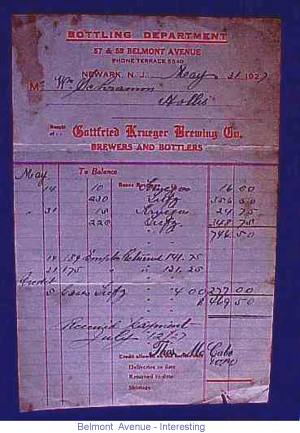 BOTTLING DEPARTMENT
57 & 59 BELMONT AVENUE
PHONE TERRACE 5540
NEWARK, N. J. May 31 1927
M Wm Schramm
Hollis
Bought of
Gottfried Krueger Brewing Co.
BREWERS AND BOTTLERS
May To Balance
14 10 Boxes 16 00
230
31 15 24 75
225 348 75
746 50
14 189 Empts Returned 141.75
21 175 " " 131.25
Credit
5 Cases " 4 00 277 00
$ 469 50
Received Payment
July
Thos. Mc Cabe
Credit allowed
Deliveries to date
Returned to date
Shortage
Belmont Avenue - Interesting